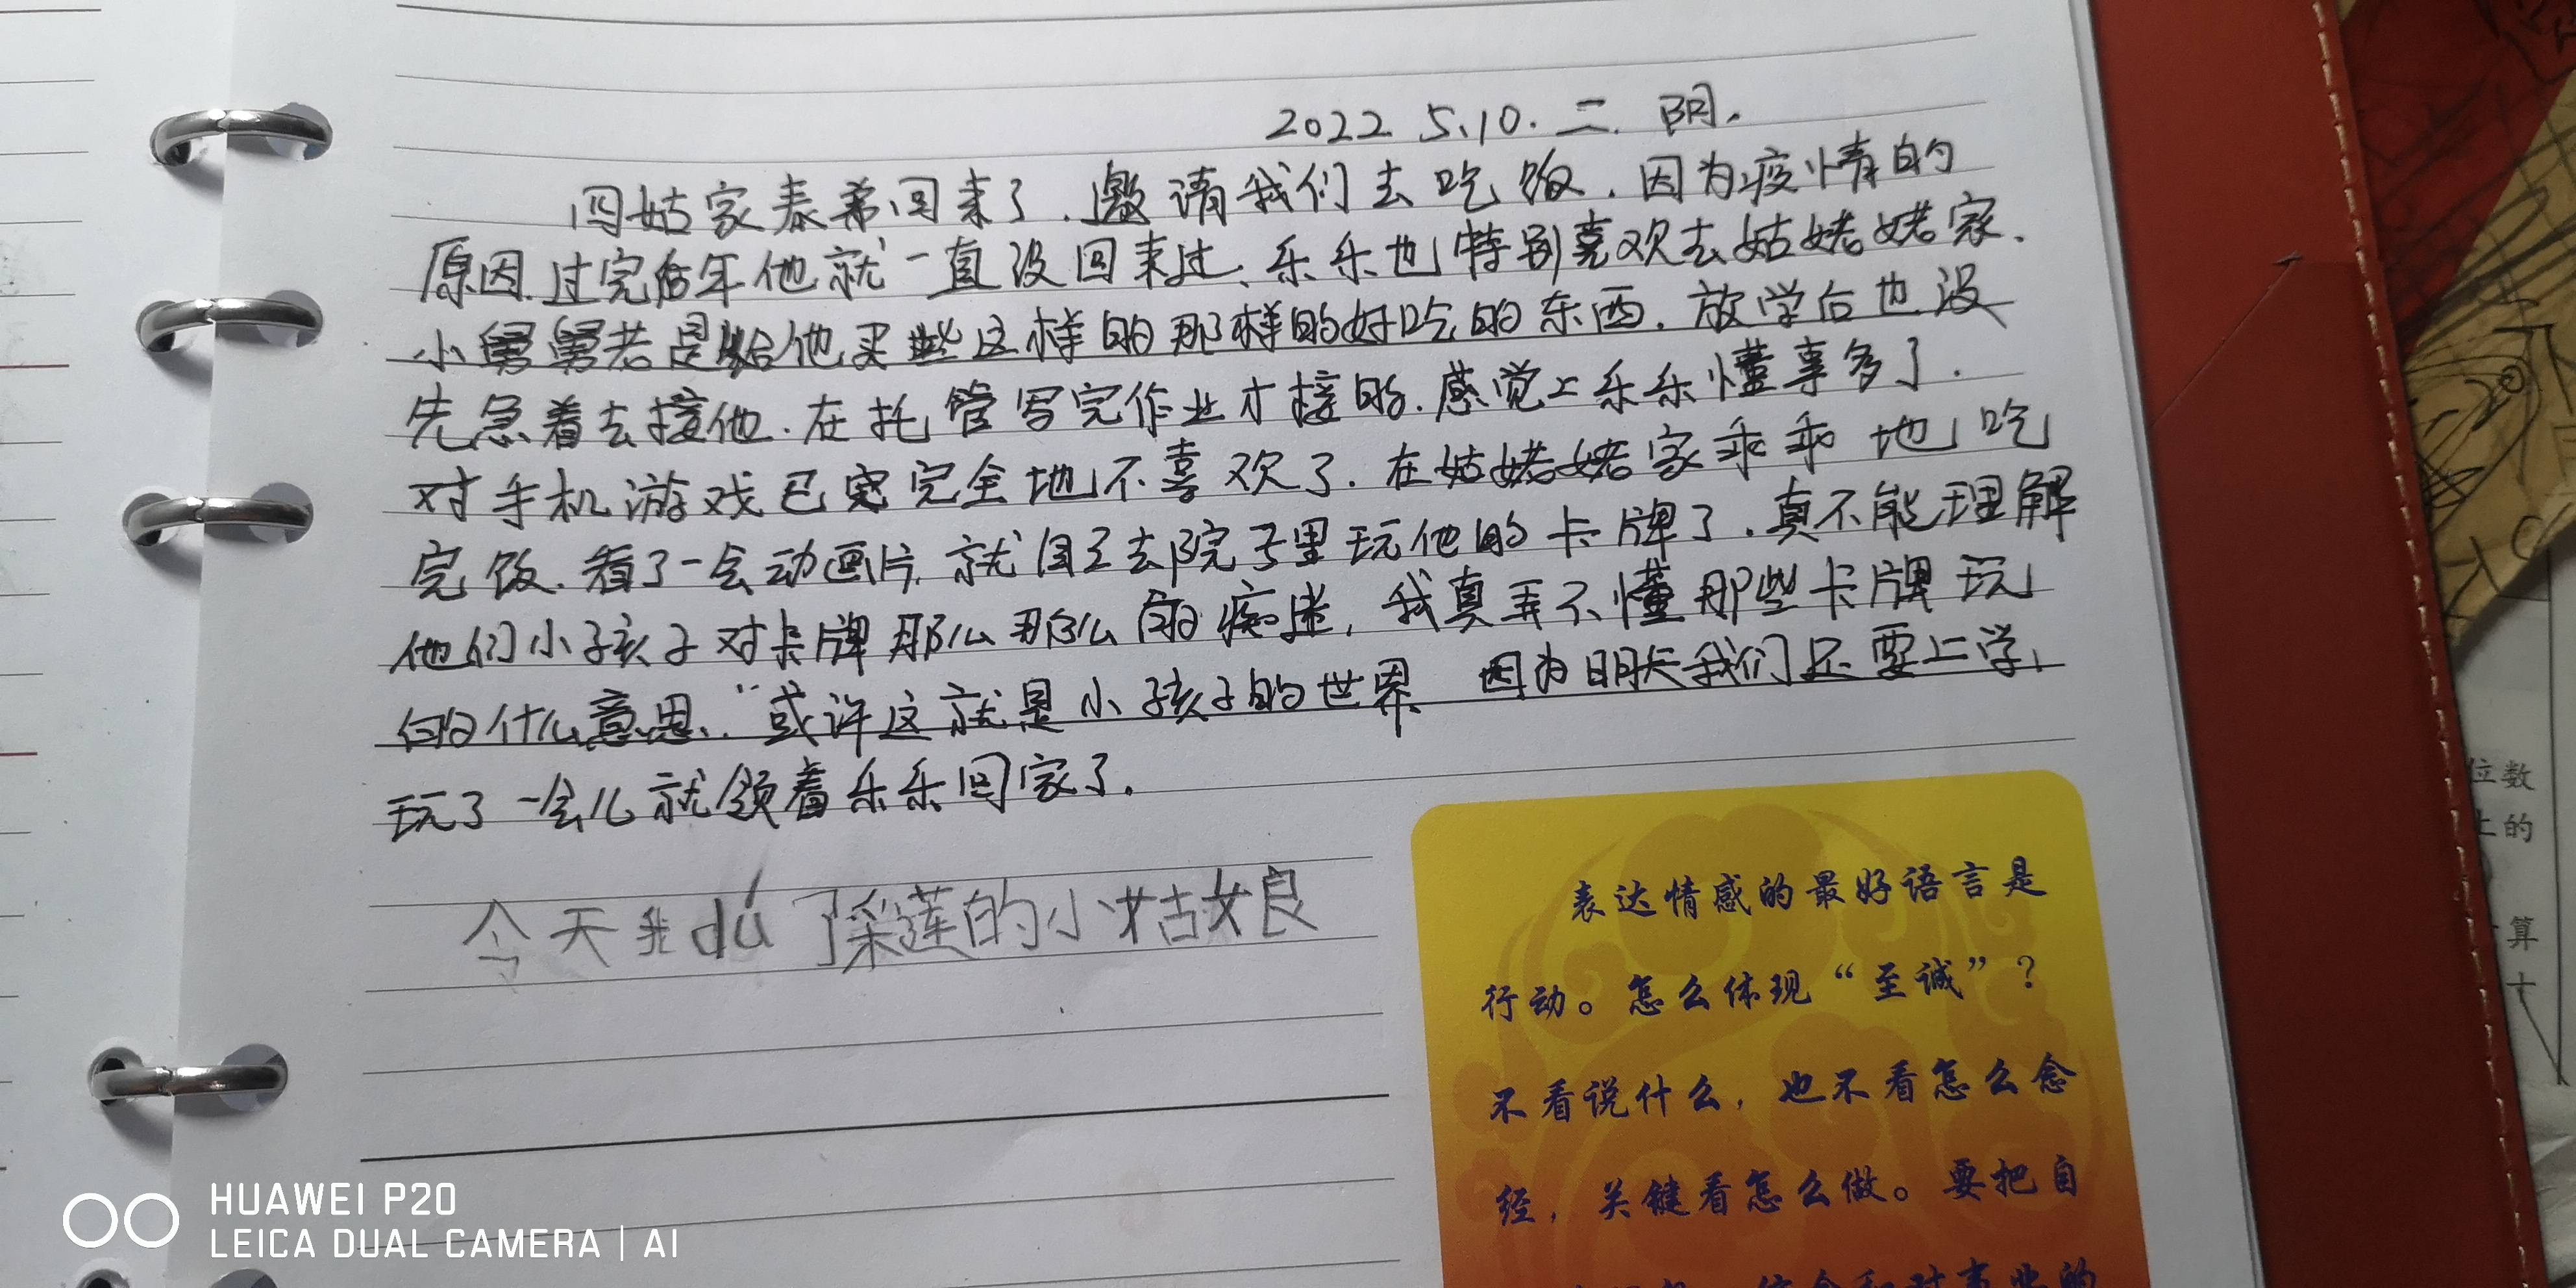 2022 5.10. 二. 阴.
四姑家泰弟回来了.邀请我们去吃饭.因为疫情的
原因.过完后年他就一直没回来过、乐乐也特别喜欢去姑姥姥家、
小舅舅老是给他买些这样的那样的好吃的东西.放学后也没
先急着去接他.在托管写完作业才接的.感觉上乐乐懂事多了.
对手机游戏已完全地不喜欢了.在姑姥姥家乖乖地吃
完饭.看了一会动画片.就自己去院子里玩他的卡牌了.真不能理解
他们小孩子对卡牌那么那么的痴迷,我真弄不懂那些卡牌玩
的什么意思..或许这就是小孩子的世界、因为明天我们还要上学,
玩了一会儿就领着乐乐回家了.
今天我dú了采莲的小姑娘
表达情感的最好语言是
行动。怎么体现“至诚”?
不看说什么,也不看怎么念
经,关键看怎么做。要把自
位数
上的
算
十
HUAWEI P20
LEICA DUAL CAMERA | AI